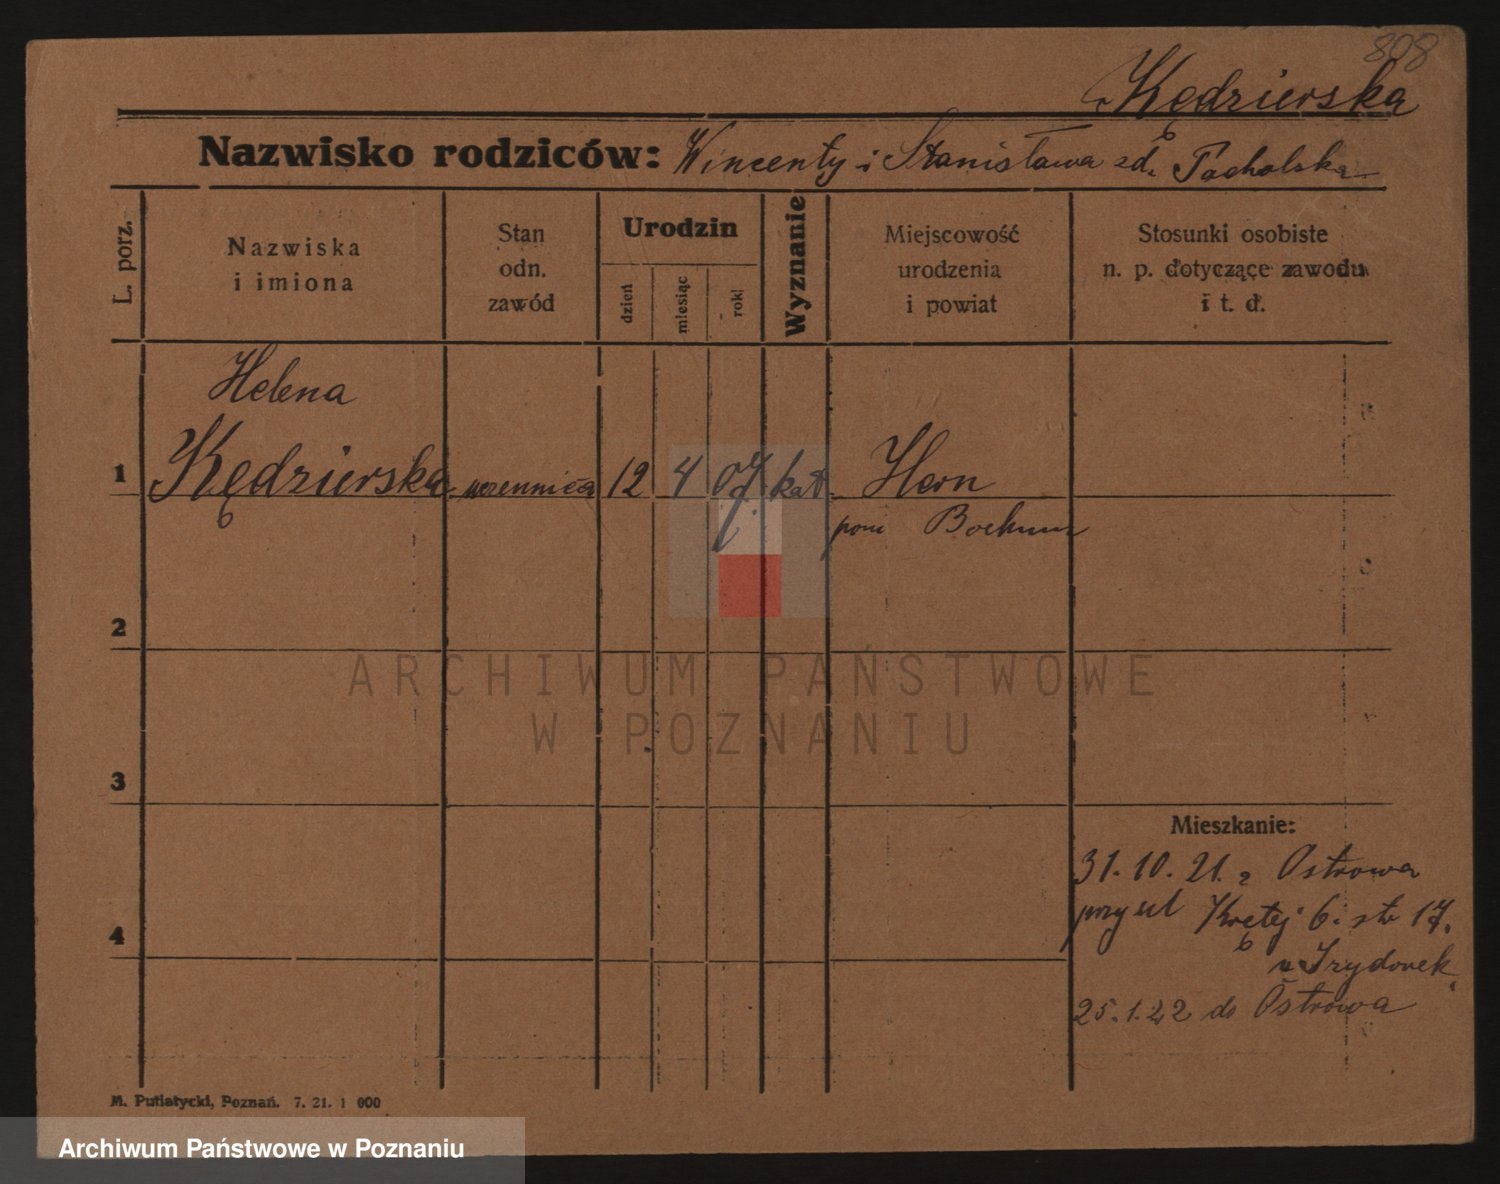 808
Kędzierska
Nazwisko rodziców: Wincenty i Stanisława zd. Pacholska
L. porz.
Nazwiska
i imiona
Stan
odn.
zawód
Urodzin
dzień
miesiąc
rok
Wyznanie
Miejscowość
urodzenia
i powiat
Stosunki osobiste
n. p. dotyczące zawodu
i t. d.
Helena
1 Kędzierska uczennica 12 4 07 kat. Hern
pow Bochum
2
3
4
Mieszkanie:
31.10.21. z Ostrowa
przy ul Krętej 6. str 17.
25.1.22 do Ostrowa
M. Putiatycki, Poznań. 7. 21. 1 000
ARCHIWUM PAŃSTWOWE
W POZNANIU
Archiwum Państwowe w Poznaniu